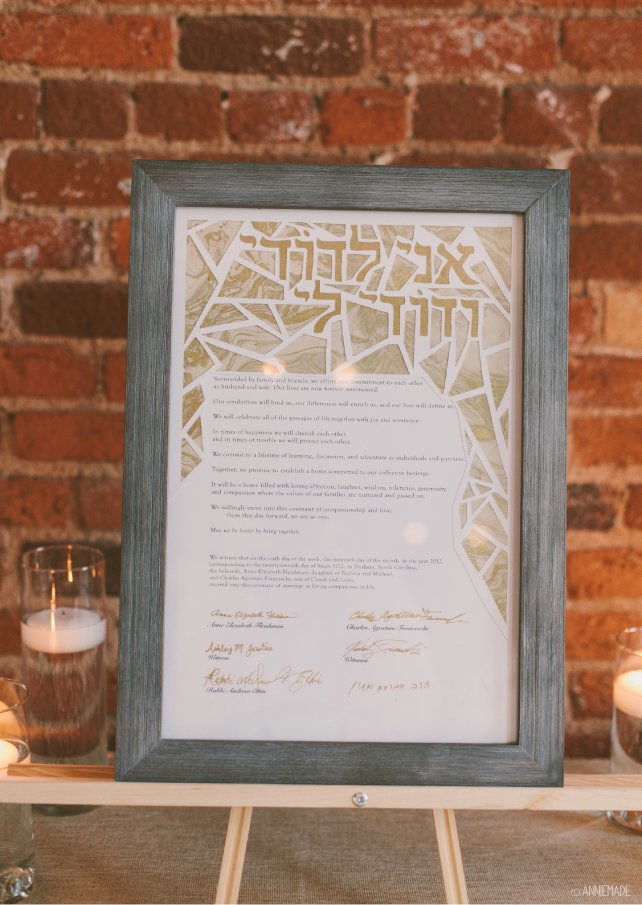 אני לדודי
ודודי לי
Surrounded by family and friends, we affirm our commitment to each other
as husband and wife. Our lives are now forever intertwined.
Our similarities will bind us, our differences will enrich us, and our love will define us.
We will celebrate all of the passages of life together with joy and reverence.
In times of happiness we will cherish each other,
and in times of trouble we will protect each other.
We commit to a lifetime of learning, discussion, and adventure as individuals and partners.
Together, we promise to establish a home committed to our collective heritage.
It will be a home filled with loving affection, laughter, wisdom, tolerance, generosity,
and compassion where the values of our families are nurtured and passed on.
We willingly enter into this covenant of companionship and love;
from this day forward, we are as one.
May we be better by being together.
We witness that on the sixth day of the week, the day of the month, in the year 2012,
corresponding to the twenty-seventh day of Sivan 5772, in Durham, North Carolina,
the beloveds, Anne Elizabeth Fleishman, daughter of Barbara and Michael,
and Charles Agostino Franceschi, son of Chuck and
entered into this covenant of marriage as loving companions in life.
Anne Elizabeth
Charles Agostino
Anne Elizabeth Fleishman
Charles Agostino Franceschi
Ashley M Justice
Witness
Witness
Rabbi
Rabbi Andrew Ettin
© ANNIEMADE